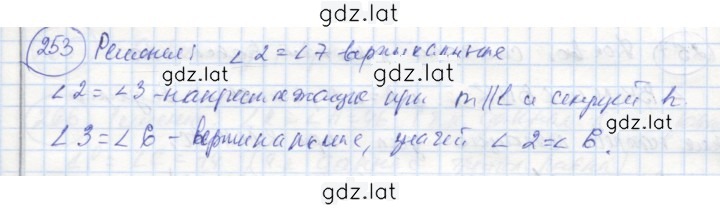 gdz.lat
253 Решение: ∠2=∠7 вертикальные
gdz.lat
∠2=∠3 - накрест лежащие при m∥l и секущей k.
∠3=∠6 - вертикальные, значит ∠2=∠6.
gdz.lat
gdz.lat